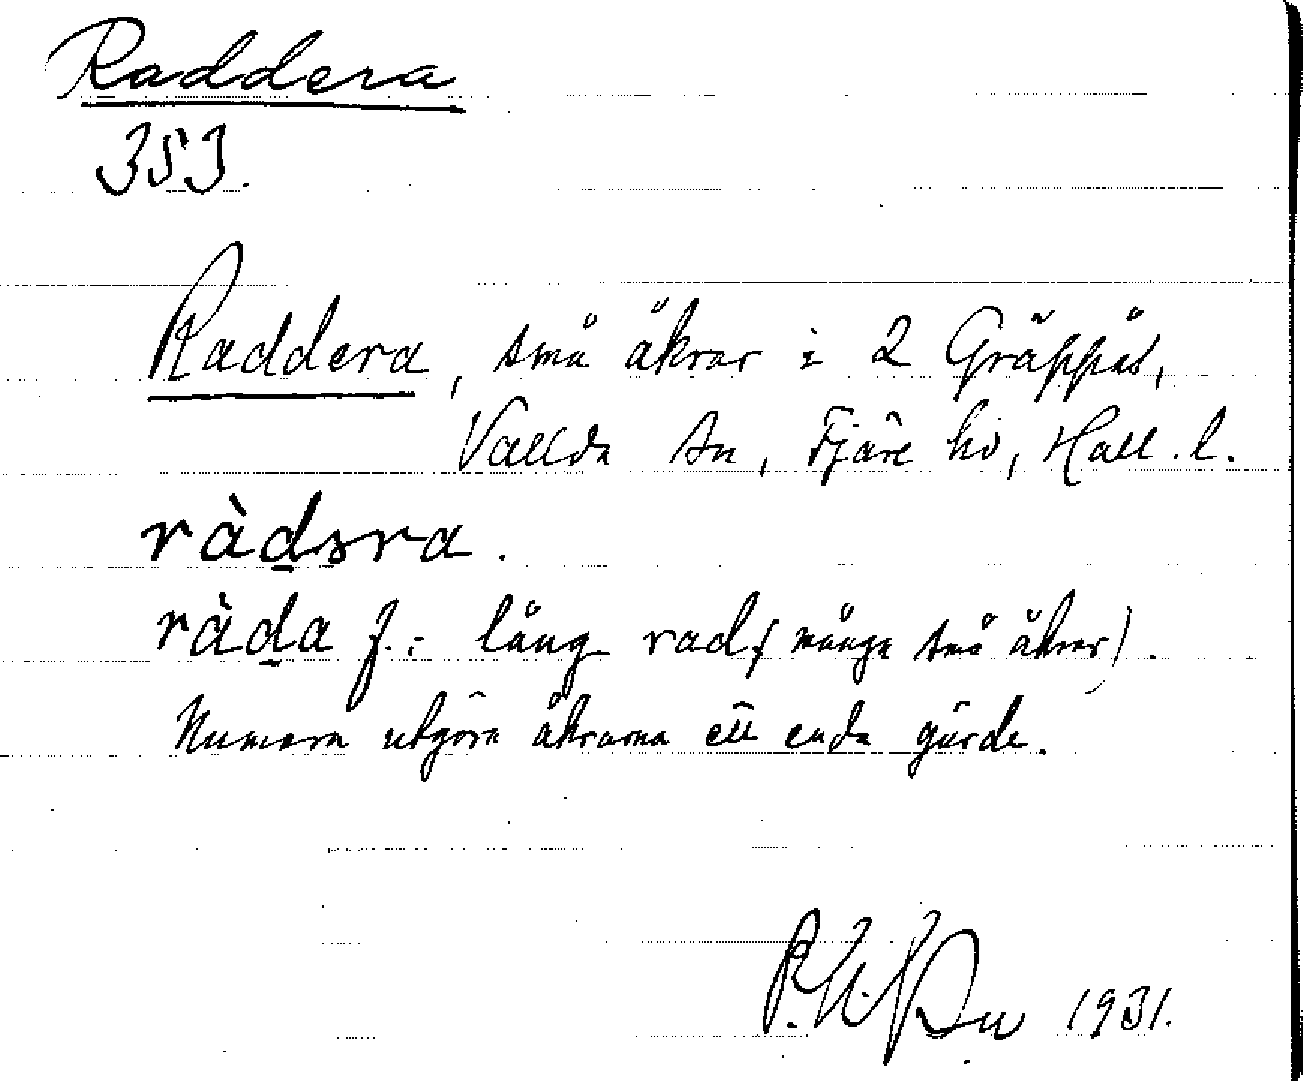 Raddera
353.
Raddera, små åkrar i 2 Gräppås,
Vallda sn, Fjäre hd, Hall. l.
ràḏəra.
ràḏa f.: lång rad (många små åkrar).
Numera utgöra åkrarna ett enda gärde.
1931.